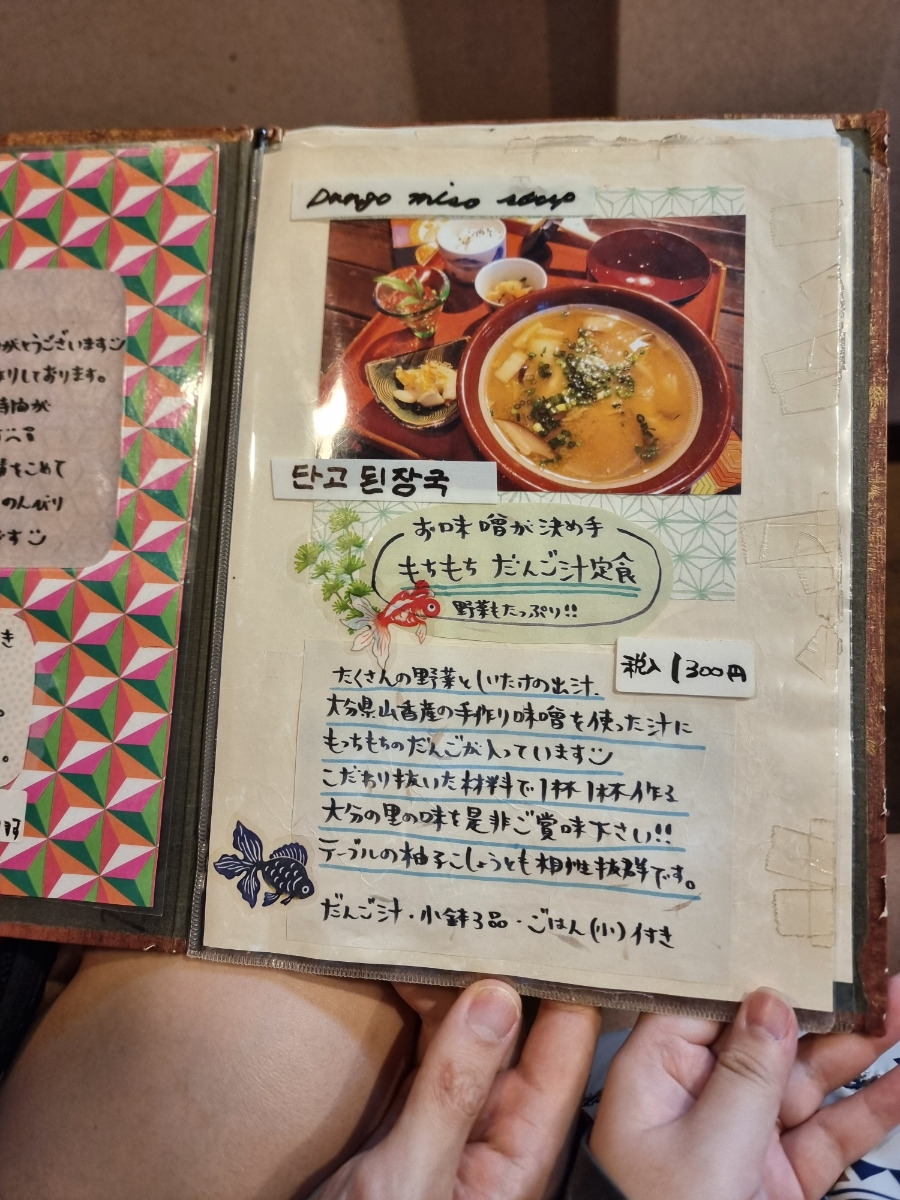 がとうございます
りしております。
をこめて
のんびり
です
き
。
。
Dango miso soup
단고 된장국
お味噌が決め手
もちもち だんご汁定食
野菜もたっぷり!!
税込 1300円
たくさんの野菜としいたけの出汁、
大分県山香産の手作り味噌を使った汁に
もっちもちのだんごが入っています
こだわり抜いた材料で1杯1杯作る
大分の里の味を是非ご賞味下さい!!
テーブルの柚子こしょうとも相性抜群です。
だんご汁・小鉢3品・ごはん(小)付き